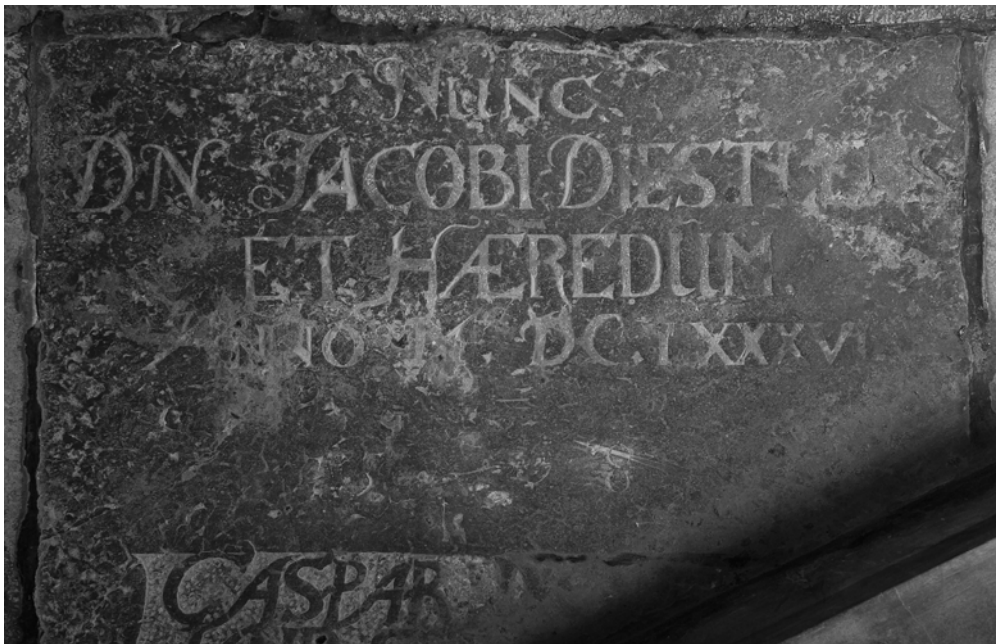 NUNC
DN JACOBI
ET HÆREDUM.
M. DC. LXXXVI
CASPAR